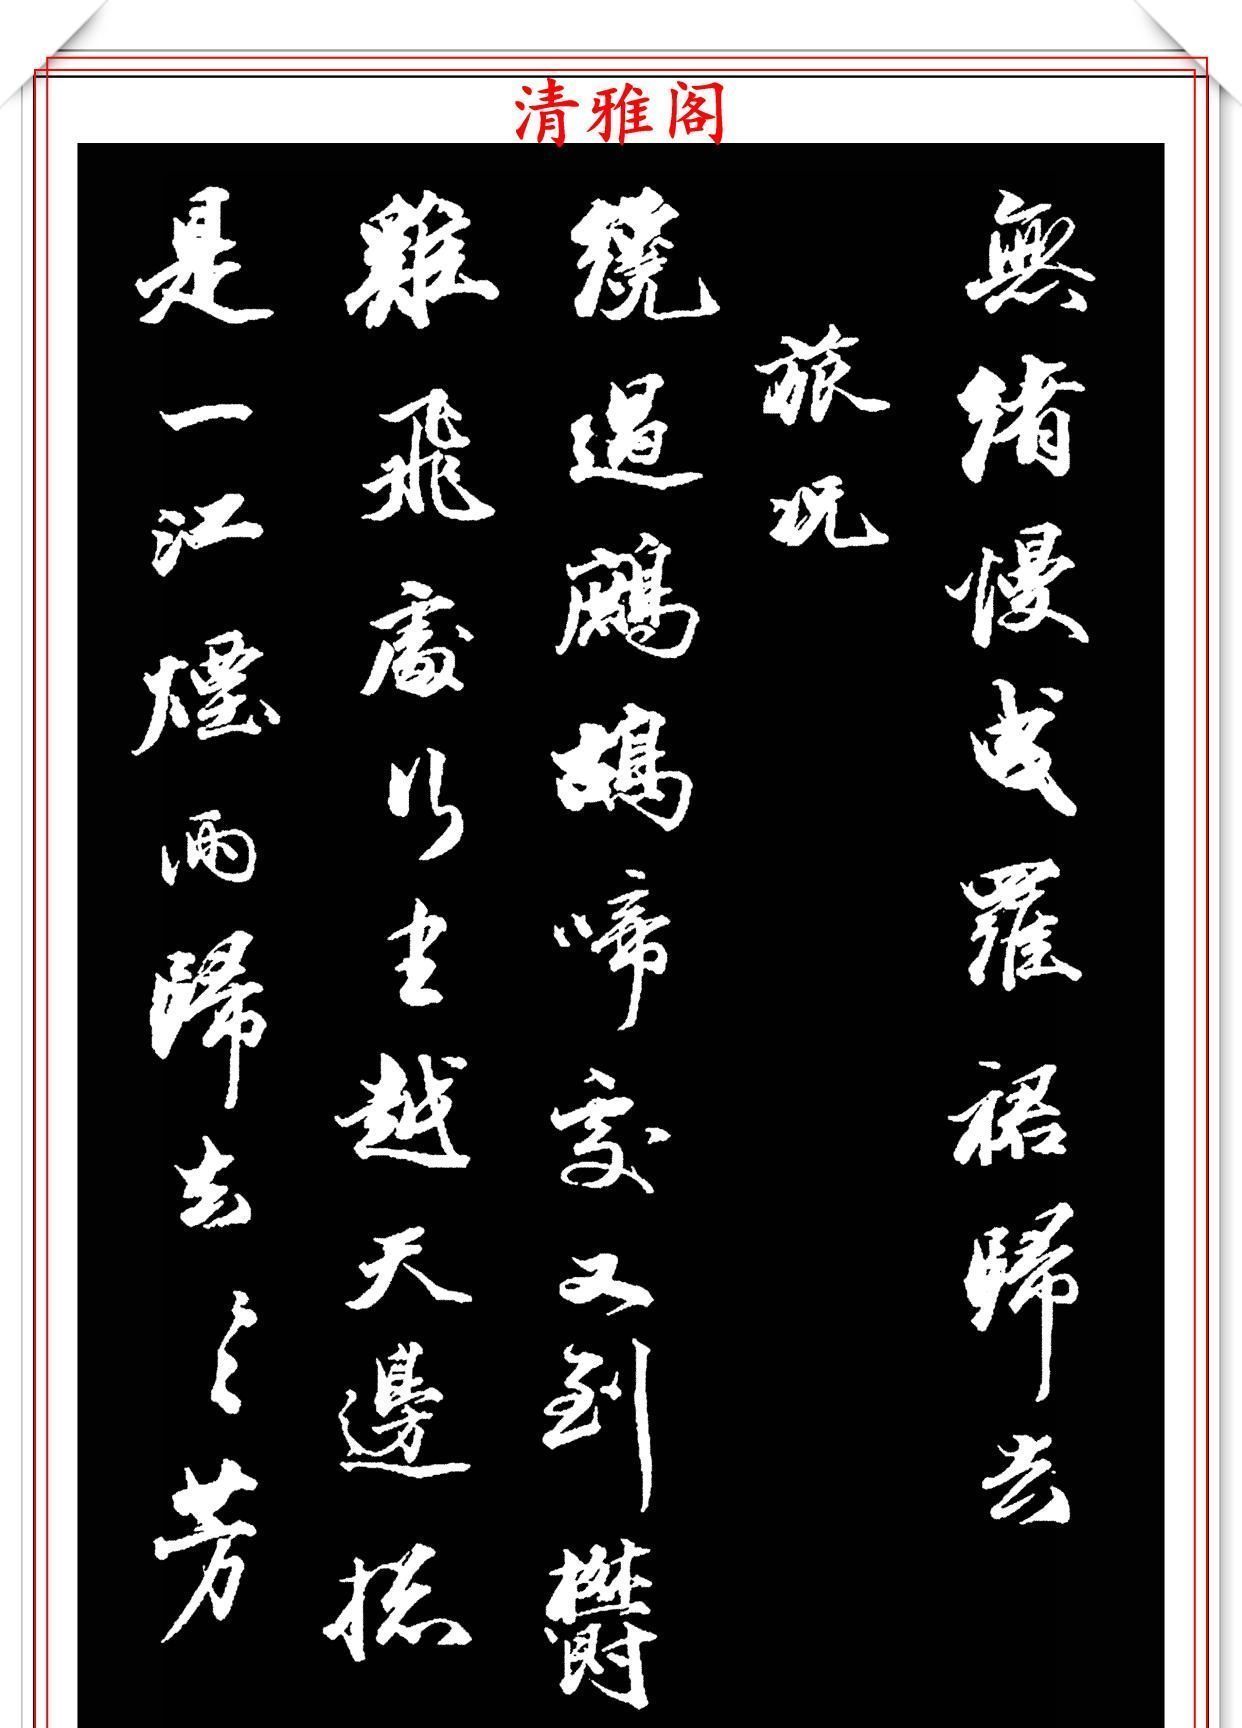 清雅阁
無緒慢曳羅裙歸去
旅况
繞過鷓鴣啼處又到鬱
難飛處行尽越天邊
是一江煙雨歸去々芳